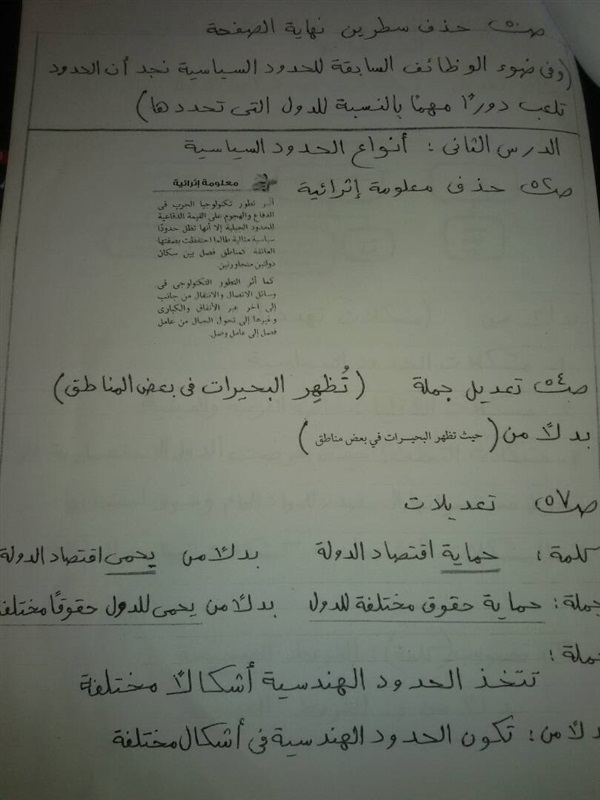 ص٥٠ حذف سطرين نهاية الصفحة
(وفى ضوء الوظائف السابقة للحدود السياسية نجد أن الحدود
تلعب دورًا مهمًا بالنسبة للدول التى تحددها)
الدرس الثانى : أنواع الحدود السياسية
ص٥٢ حذف معلومة إثرائية
معلومة إثرائية
أثر تطور تكنولوجيا الحرب فى
الدفاع والهجوم على القيمة الدفاعية
للحدود الجبلية إلا أنها تظل حدودًا
سياسية مثالية طالما احتفظت بصفتها
العائقة كمناطق فصل بين سكان
دولتين متجاورتين.
كما أثر التطور التكنولوجى فى
وسائل الاتصال والانتقال من جانب
إلى آخر عبر الأنفاق والكبارى
وغيرها إلى تحول الجبال من عامل
فصل إلى عامل وصل.
ص٥٤ تعديل جملة (تُظهِر البحيرات فى بعض المناطق)
بدلًا من (حيث تظهر البحيرات في بعض مناطق)
ص٥٧ تعديلات
كلمة : حماية اقتصاد الدولة بدلًا من يحمى اقتصاد الدولة
جملة : حماية حقوق مختلفة للدول بدلًا من يحمى للدول حقوقًا مختلفة
جملة :
تتخذ الحدود الهندسية أشكالًا مختلفة
بدلًا من : تكون الحدود الهندسية فى أشكال مختلفة